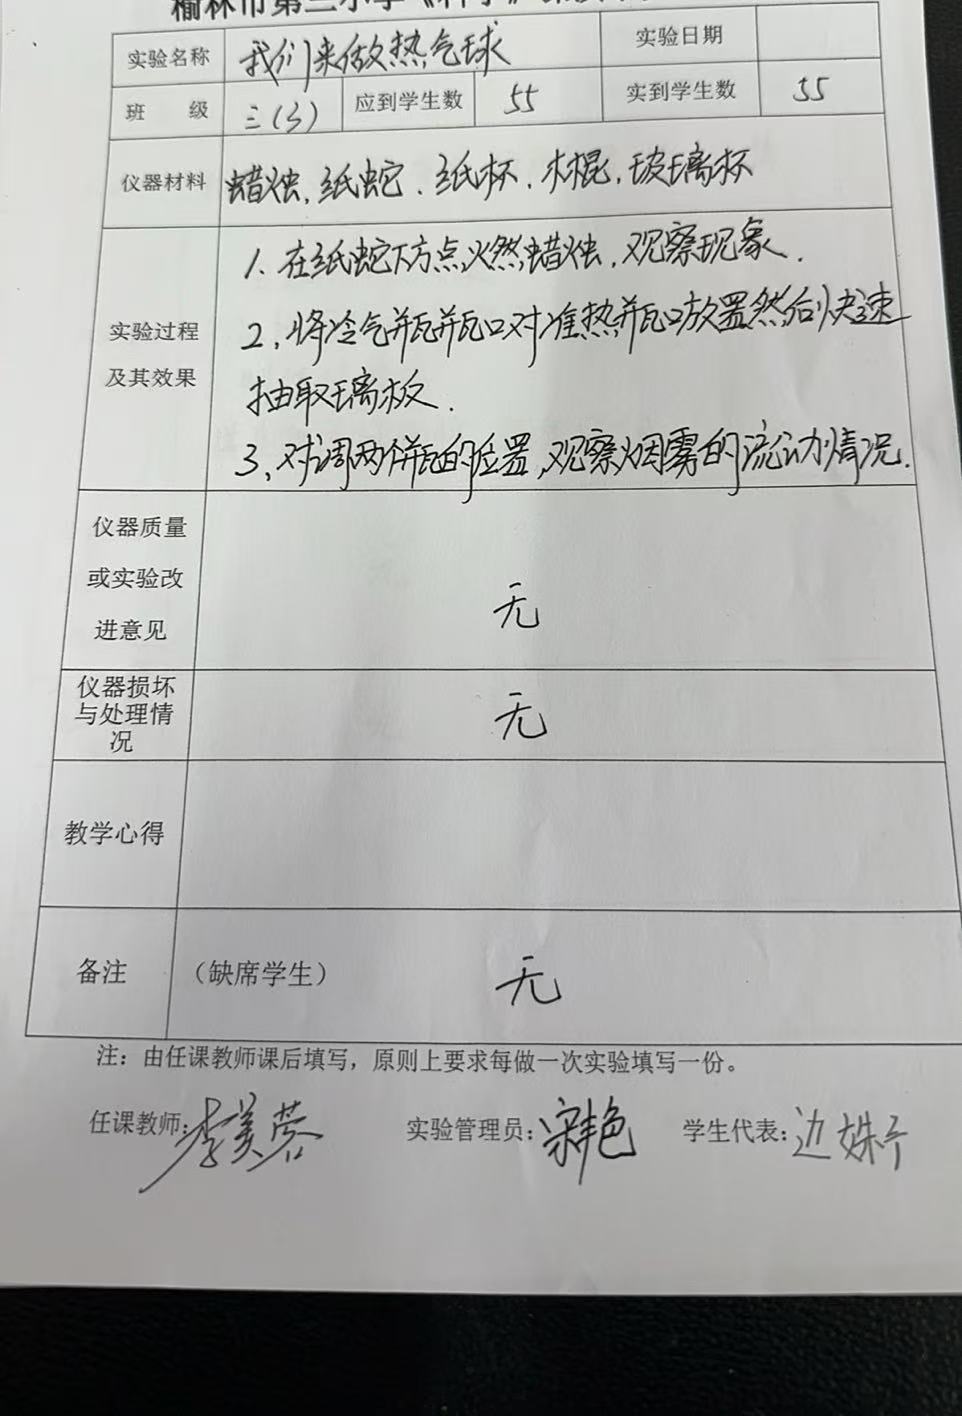 实验名称 我们来做热气球 实验日期
班 级 三(3) 应到学生数 55 实到学生数 55
仪器材料 蜡烛,纸蛇、纸杯,木棍,玻璃杯
实验过程
及其效果
1、在纸蛇下方点火然蜡烛,观察现象.
2、将冷气瓶瓶口对准热瓶口放置然后快速
抽取璃板.
3、对调两个瓶的位置,观察烟雾的流动情况.
仪器质量
或实验改
进意见
无
仪器损坏
与处理情
况
无
教学心得
备注 (缺席学生) 无
注:由任课教师课后填写,原则上要求每做一次实验填写一份。
任课教师:李美蓉 实验管理员: 学生代表:边姝